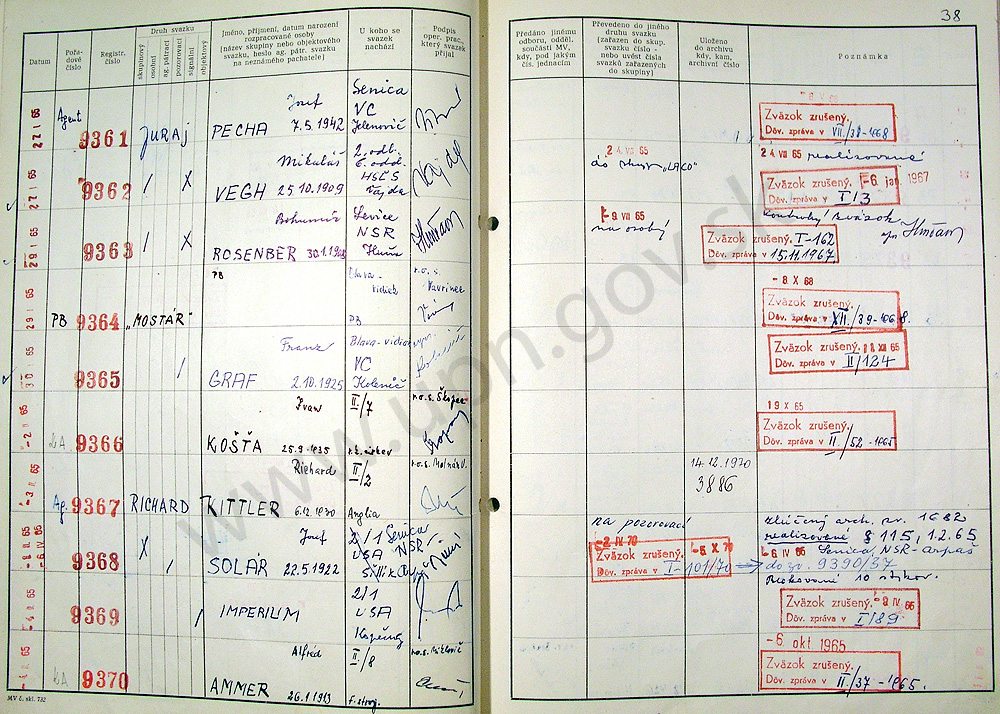 38
Datum
Pořadové číslo
Registr. číslo
Druh svazku
skupinový
osobní
ag. pátrací
pozorovací
signální
objektový
Jméno, příjmení, datum narození
rozpracované osoby
(název skupiny nebo objektového
svazku, heslo ag. pátr. svazku
na neznámého pachatele)
U koho se
svazek
nachází
Podpis
oper. prac.,
který svazek
přijal
Předáno jinému
odboru, odděl.
součásti MV,
kdy, pod jakým
čís. jednacím
Převedeno do jiného
druhu svazku
(zařazen do skup.
svazku číslo -
nebo uvést čísla
svazků zařazených
do skupiny)
Uloženo
do archivu
kdy, kam,
archivní číslo
Poznámka
27 I 65
Agent
9361
JURAJ
Jozef
PECHA 7.5.1942
Senica
VC
Jelenovič
Zväzok zrušený.
Dôv. zpráva v VII./38-1968
27 I 65
9362
/ X
Mikuláš
VEGH 25.10.1909
2. odb.
6. odd.
HSĽS
Vajda
24 VII 65
do skup. "LACO"
24 VII 65 realizované
Zväzok zrušený. -6 jan 1967
Dôv. zpráva v I/3
29 I 65
9363
/ X
Bohumír
ROSENBER 30.1.1928
Levice
NSR
-9 VII 65
na osobý
Kontrolný zväzok
Zväzok zrušený. I-162
Dôv. zpráva v 15.11.1967.
29 I 65
PB
9364
"MOSTAR"
PB
Blava-
vidiek
PB
r.o.s.
Vavrinec
-8 X 68
Zväzok zrušený.
Dôv. zpráva v XII./39-1968.
30 I 65
9365
/
Franz
GRAF 2.10.1925
Blava-vidiek
VC
Kolenič
Zväzok zrušený. 11 XII 65
Dôv. zpráva v II/124
-2 II 65
9366
Ivan
KOŠŤA 25.9.1935
II/7
r.k. cirkev
r.o.s. Škoper
19 X 65
Zväzok zrušený.
Dôv. zpráva v II./52-1965
-3 II 65
Ag.
9367
RICHARD
Richard
KITTLER 6.12.1930
II/2
Anglia
r.o.s. Molnár V.
14.12.1970
3886
9368
X /
Jozef
SOLÁR 22.5.1922
2/1 Senica
USA NSR-
na pozorovací
-2 IV 70
Zväzok zrušený. -5 X 70
Dôv. zpráva v I-101/70
zlúčený arch. sv. 1682
realizované § 115, 1.2.65
-6 IV 65 Senica, NSR-Arpáš
do zv. 9390/37
Blokované 10 stykov.
-4 II 65
9369
/
IMPERIUM
2/1
USA
Kopečný
Zväzok zrušený. -9 IV 66
Dôv. zpráva v I/89
9370
Alfréd
AMMER 26.1.1913
II/8
F. stroj.
r.o.s. Miklovič
-6 okt 1965
Zväzok zrušený.
Dôv. zpráva v II./37-1965.
MV č. skl. 732
www.upn.gov.sk